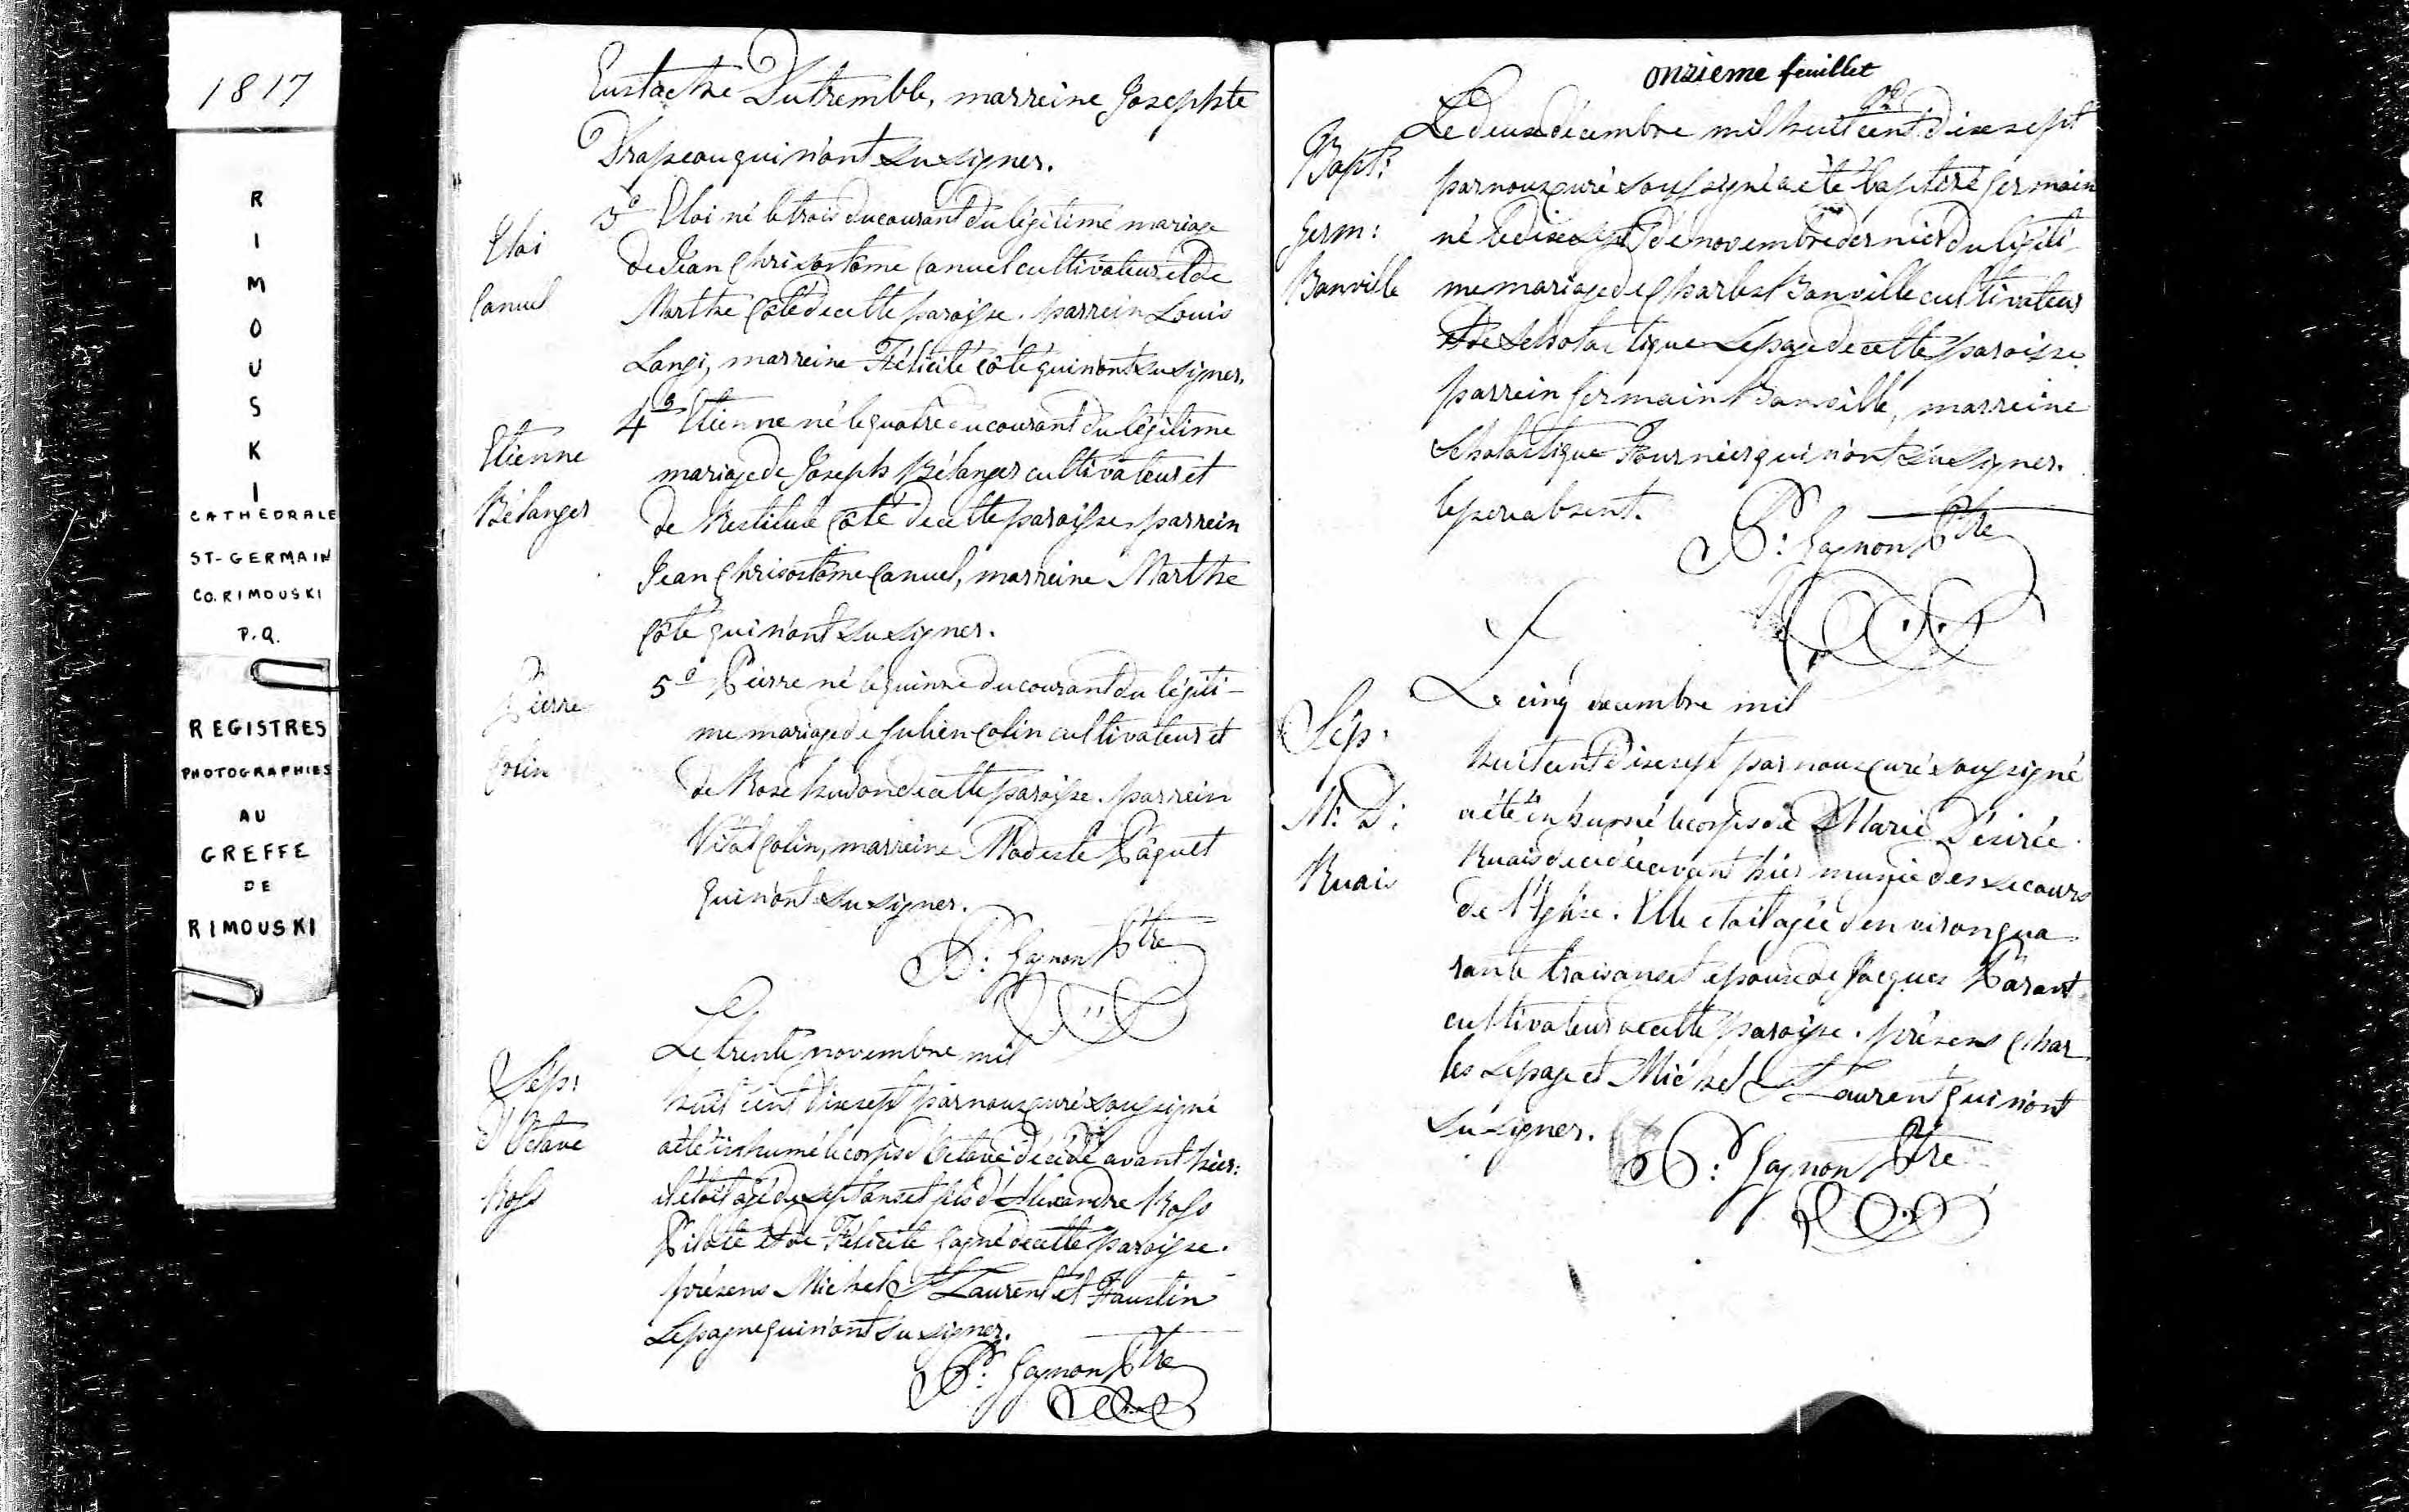 1817
R
I
M
O
U
S
K
I
CATHEDRALE
ST-GERMAIN
CO. RIMOUSKI
P.Q.
REGISTRES
PHOTOGRAPHIES
AU
GREFFE
DE
RIMOUSKI
Eustache Dutremble, marreine Josephte
Drapeau qui n'ont su signer.
Eloi
Canuel
3º Eloi né le trois du courant du légitime mariage
de Jean Chrisostôme Canuel cultivateur et de
Marthe Côté de cette paroisse. parrein Louis
Langi, marreine Félicité Côté qui n'ont su signer.
Etienne
Bélanger
4º Etienne né le quatre du courant du légitime
mariage de Joseph Bélanger cultivateur et
de Restitule Côté de cette paroisse, parrein
Jean Chrisostôme Canuel, marreine Marthe
Côté qui n'ont su signer.
Pierre
Colin
5º Pierre né le quinze du courant du légiti-
me mariage de Julien Colin cultivateur et
de Rose hudon de cette paroisse. parrein
Vital Colin, marreine Modeste Pâquet
qui n'ont su signer.
P: Gagnon Ptre
Sép:
d'Octave
Ross
Le trente novembre mil
huit cent dixsept par nous curé soussigné
a été inhumé le corps d'Octave décédé avant hier:
il étoit agé de sept ans et fils d'Alexandre Ross
Pilote et de Félicité Gagné de cette paroisse.
présens Michel St Laurent et Faustin
Lepagne qui n'ont su signer.
P: Gagnon Ptre
onzieme feuillet
Bapt:
Germ:
Banville
Le deux décembre mil huit cent dixsept
par nous curé soussigné a été baptisé Germain
né le dixsept de novembre dernier du légiti-
me mariage de Charles Banville cultivateur
et de Scholastique Lepage de cette paroisse.
parrein Germain Banville, marreine
Scholastique Fournier qui n'ont su signer.
le pere absent.
P: Gagnon Ptre
Sép:
M: D:
Ruais
Le cinq decembre mil
huit cent dixsept par nous curé soussigné
a été inhumé le corps de Marie Désirée
Ruais decedée avant hier munie des secours
de l'Eglise. Elle etait agée d'environ qua
rante trois ans et epouse de Jacques Parant
cultivateur de cette paroisse. présens Char
les Lepage et Michel St Laurent qui n'ont
su signer.
P: Gagnon Ptre